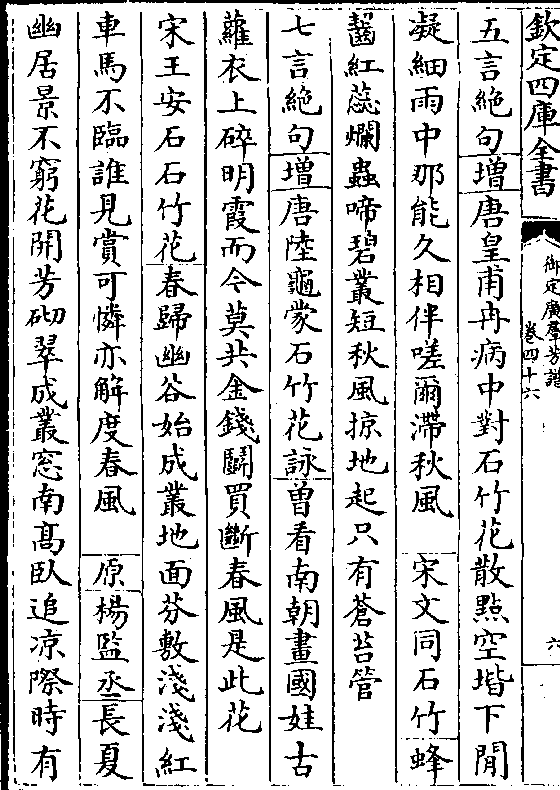 欽定四庫全書
御定廣羣芳譜
卷四十六
六
五言絶句增唐皇甫冉病中對石竹花散點空堦下閒
凝細雨中那能久相伴嗟爾滯秋風 宋文同石竹蜂
齧紅蕊爛蟲啼碧叢短秋風掠地起只有蒼苔管
七言絶句增唐陸龜蒙石竹花詠曽看南朝畫國娃古
蘿衣上碎明霞而今莫共金錢鬭買斷春風是此花
宋王安石石竹花春歸幽谷始成叢地面芬敷淺淺紅
車馬不臨誰見賞可憐亦解度春風 原楊監丞長夏
幽居景不窮花開芳砌翠成叢窓南髙臥追凉際時有